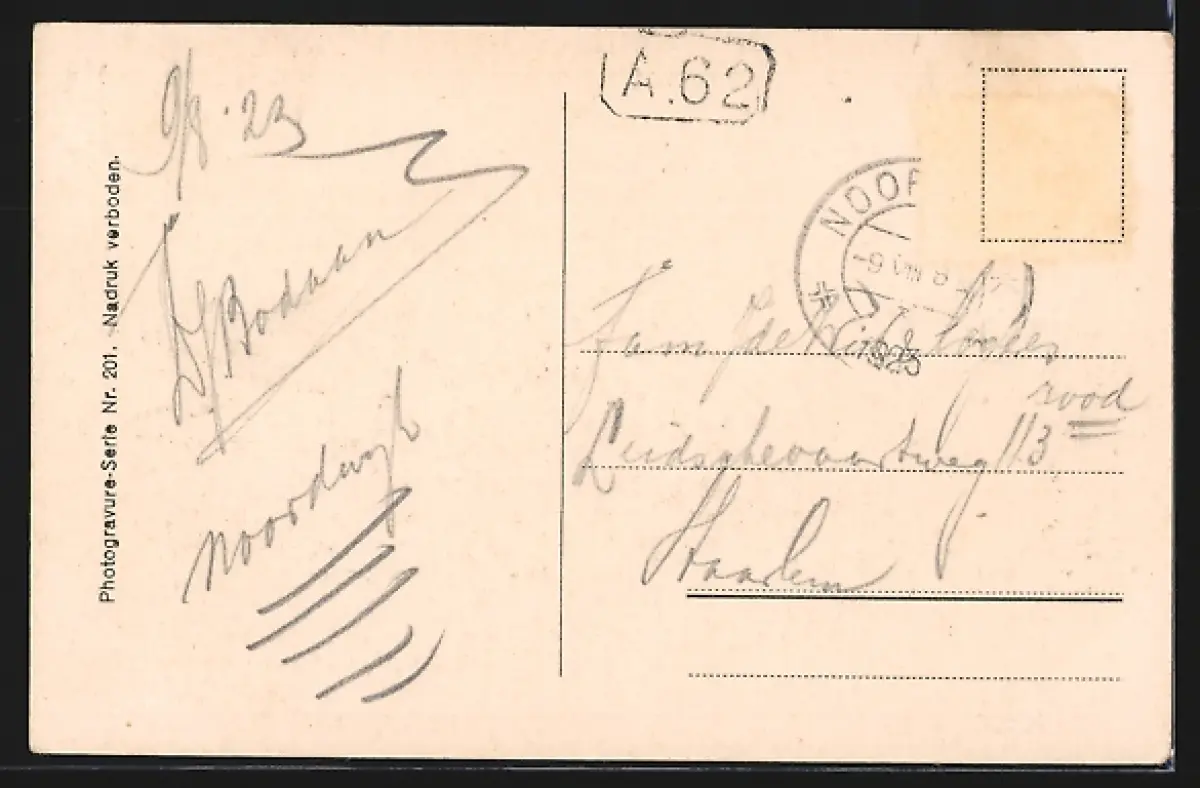 Photogravure-Serie Nr. 201. - Nadruk verboden.
9/8 . 23
Bodaan
Noordwijk
A.62
NOOR
-9 VIII 8
1923
Fam
rood
Leidschevaartweg 113
Haarlem